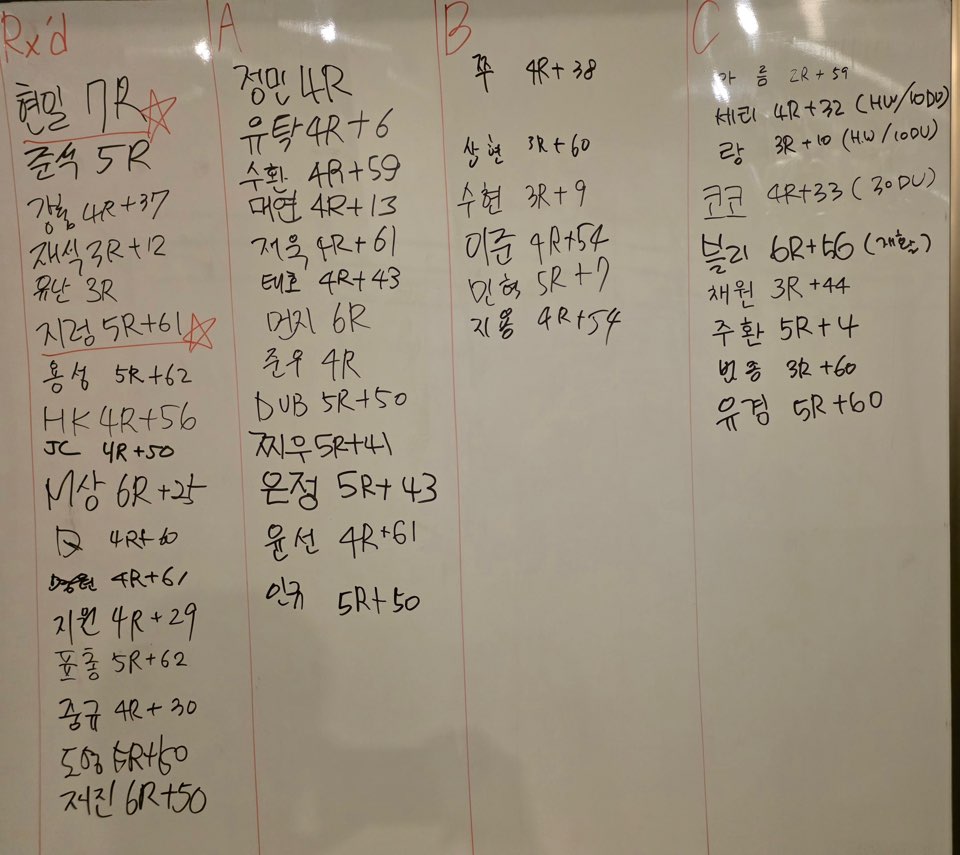 Rx'd
현밀 7R
준식 5R
강림 4R+37
재식 3R+12
유난 3R
지렁 5R+61
용성 5R+62
HK 4R+56
JC 4R+50
M상 6R+25
4R+60
4R+61
지원 4R+29
표총 5R+62
중규 4R+30
도영 5R+50
재진 6R+50
A
정민 4R
유탁 4R+6
수환 4R+59
대연 4R+13
저욱 4R+61
태호 4R+43
먼지 6R
준우 4R
DUB 5R+50
찌우 5R+41
은정 5R+43
윤선 4R+61
인규 5R+50
B
쭈 4R+38
상현 3R+60
수현 3R+9
이준 4R+54
민혁 5R+7
지용 4R+54
C
아름 2R+59
세리 4R+32 (HW/10DU)
랑 3R+10 (H.W/10DU)
코코 4R+33 (30DU)
블리 6R+56 (재활)
채원 3R+44
주환 5R+4
범종 3R+60
유겸 5R+60